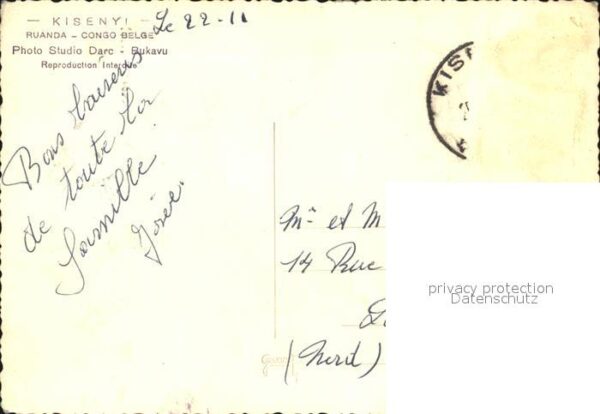 - KISENYI -
RUANDA - CONGO BELGE
Photo Studio Darc - Bukavu
Reproduction Interdite
Le 22-11
KIS
Bons baisers
de toute la
famille
José.
Mr et M
14 Rue
(Nord)
privacy protection
Datenschutz